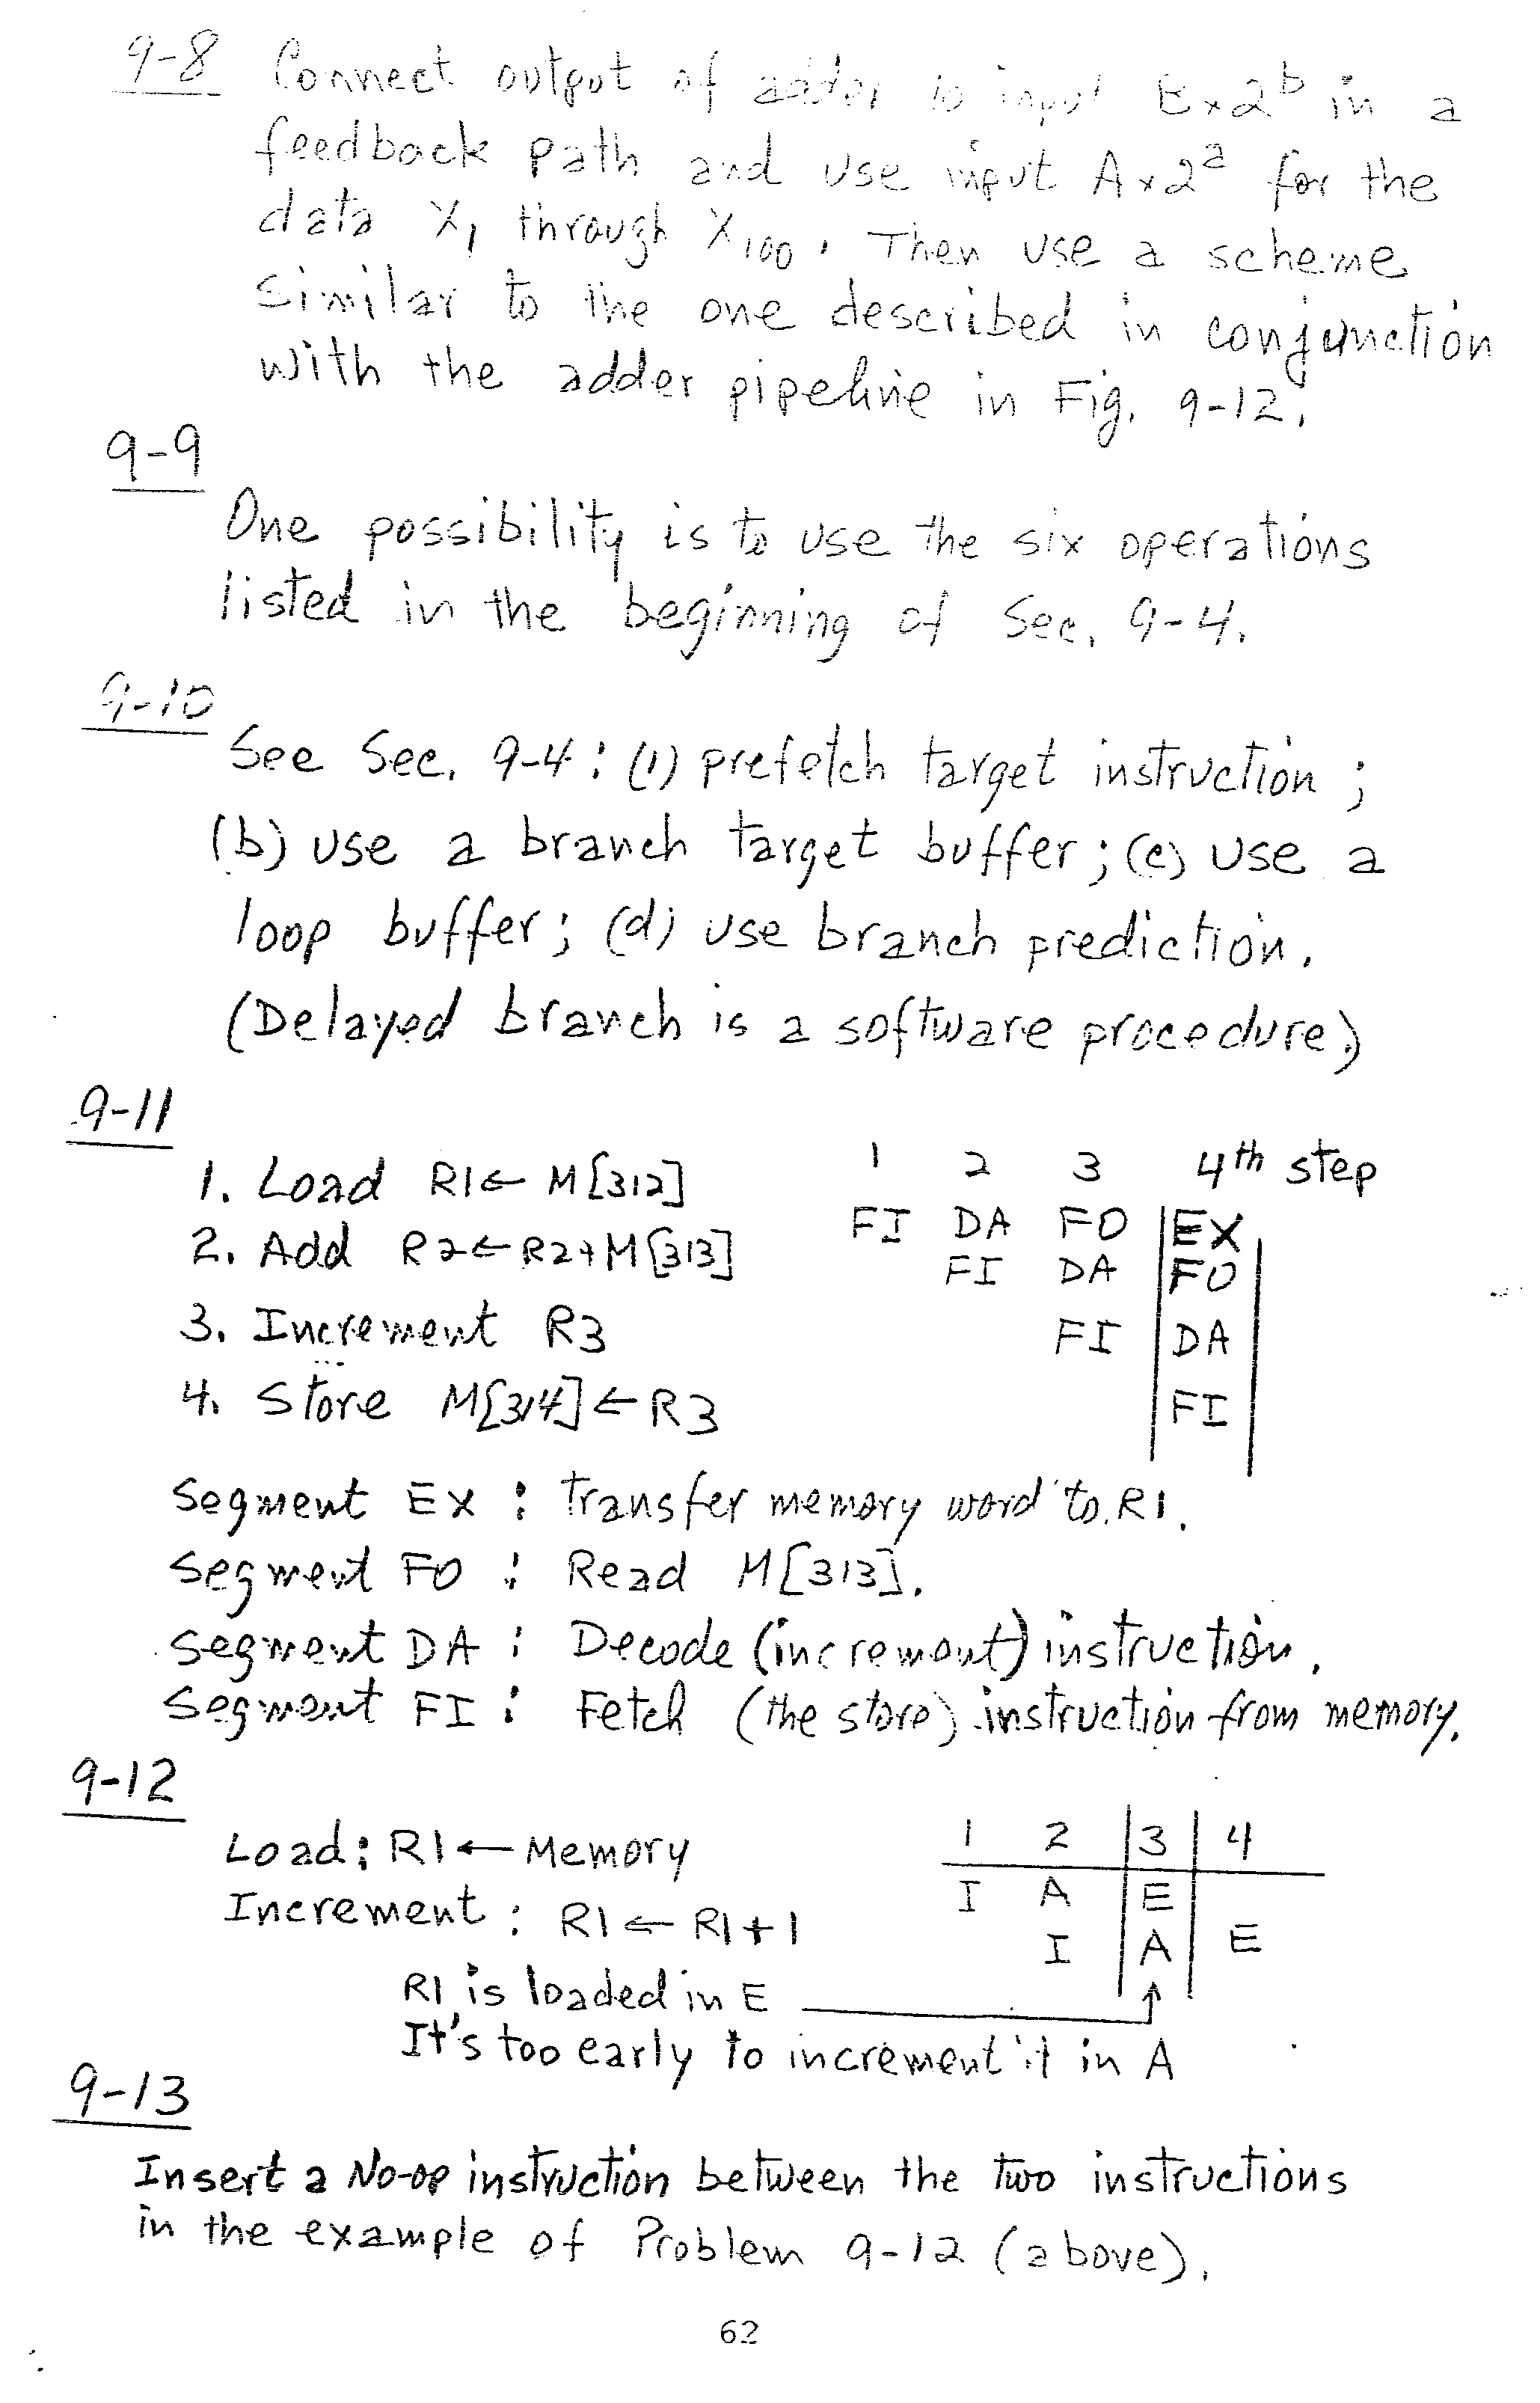 9-8 Connect output of adder to input B×2ᵇ in a
feedback path and use input A×2ᵃ for the
data X₁ through X₁₀₀. Then use a scheme
similar to the one described in conjunction
with the adder pipeline in Fig. 9-12.
9-9
One possibility is to use the six operations
listed in the beginning of Sec. 9-4.
9-10
See Sec. 9-4: (1) prefetch target instruction;
(b) use a branch target buffer; (c) use a
loop buffer; (d) use branch prediction.
(Delayed branch is a software procedure.)
9-11
1 2 3 4th step
1. Load R1← M[312] FI DA FO EX
2. Add R2←R2+M[313] FI DA FO
3. Increment R3 FI DA
4. Store M[314]←R3 FI
Segment EX : Transfer memory word to R1.
Segment FO : Read M[313].
Segment DA : Decode (increment) instruction.
Segment FI : Fetch (the store) instruction from memory.
9-12
Load: R1 ← Memory 1 2 3 4
Increment: R1 ← R1 + 1 I A E
I A E
R1 is loaded in E
It's too early to increment it in A
9-13
Insert a No-op instruction between the two instructions
in the example of Problem 9-12 (above).
62